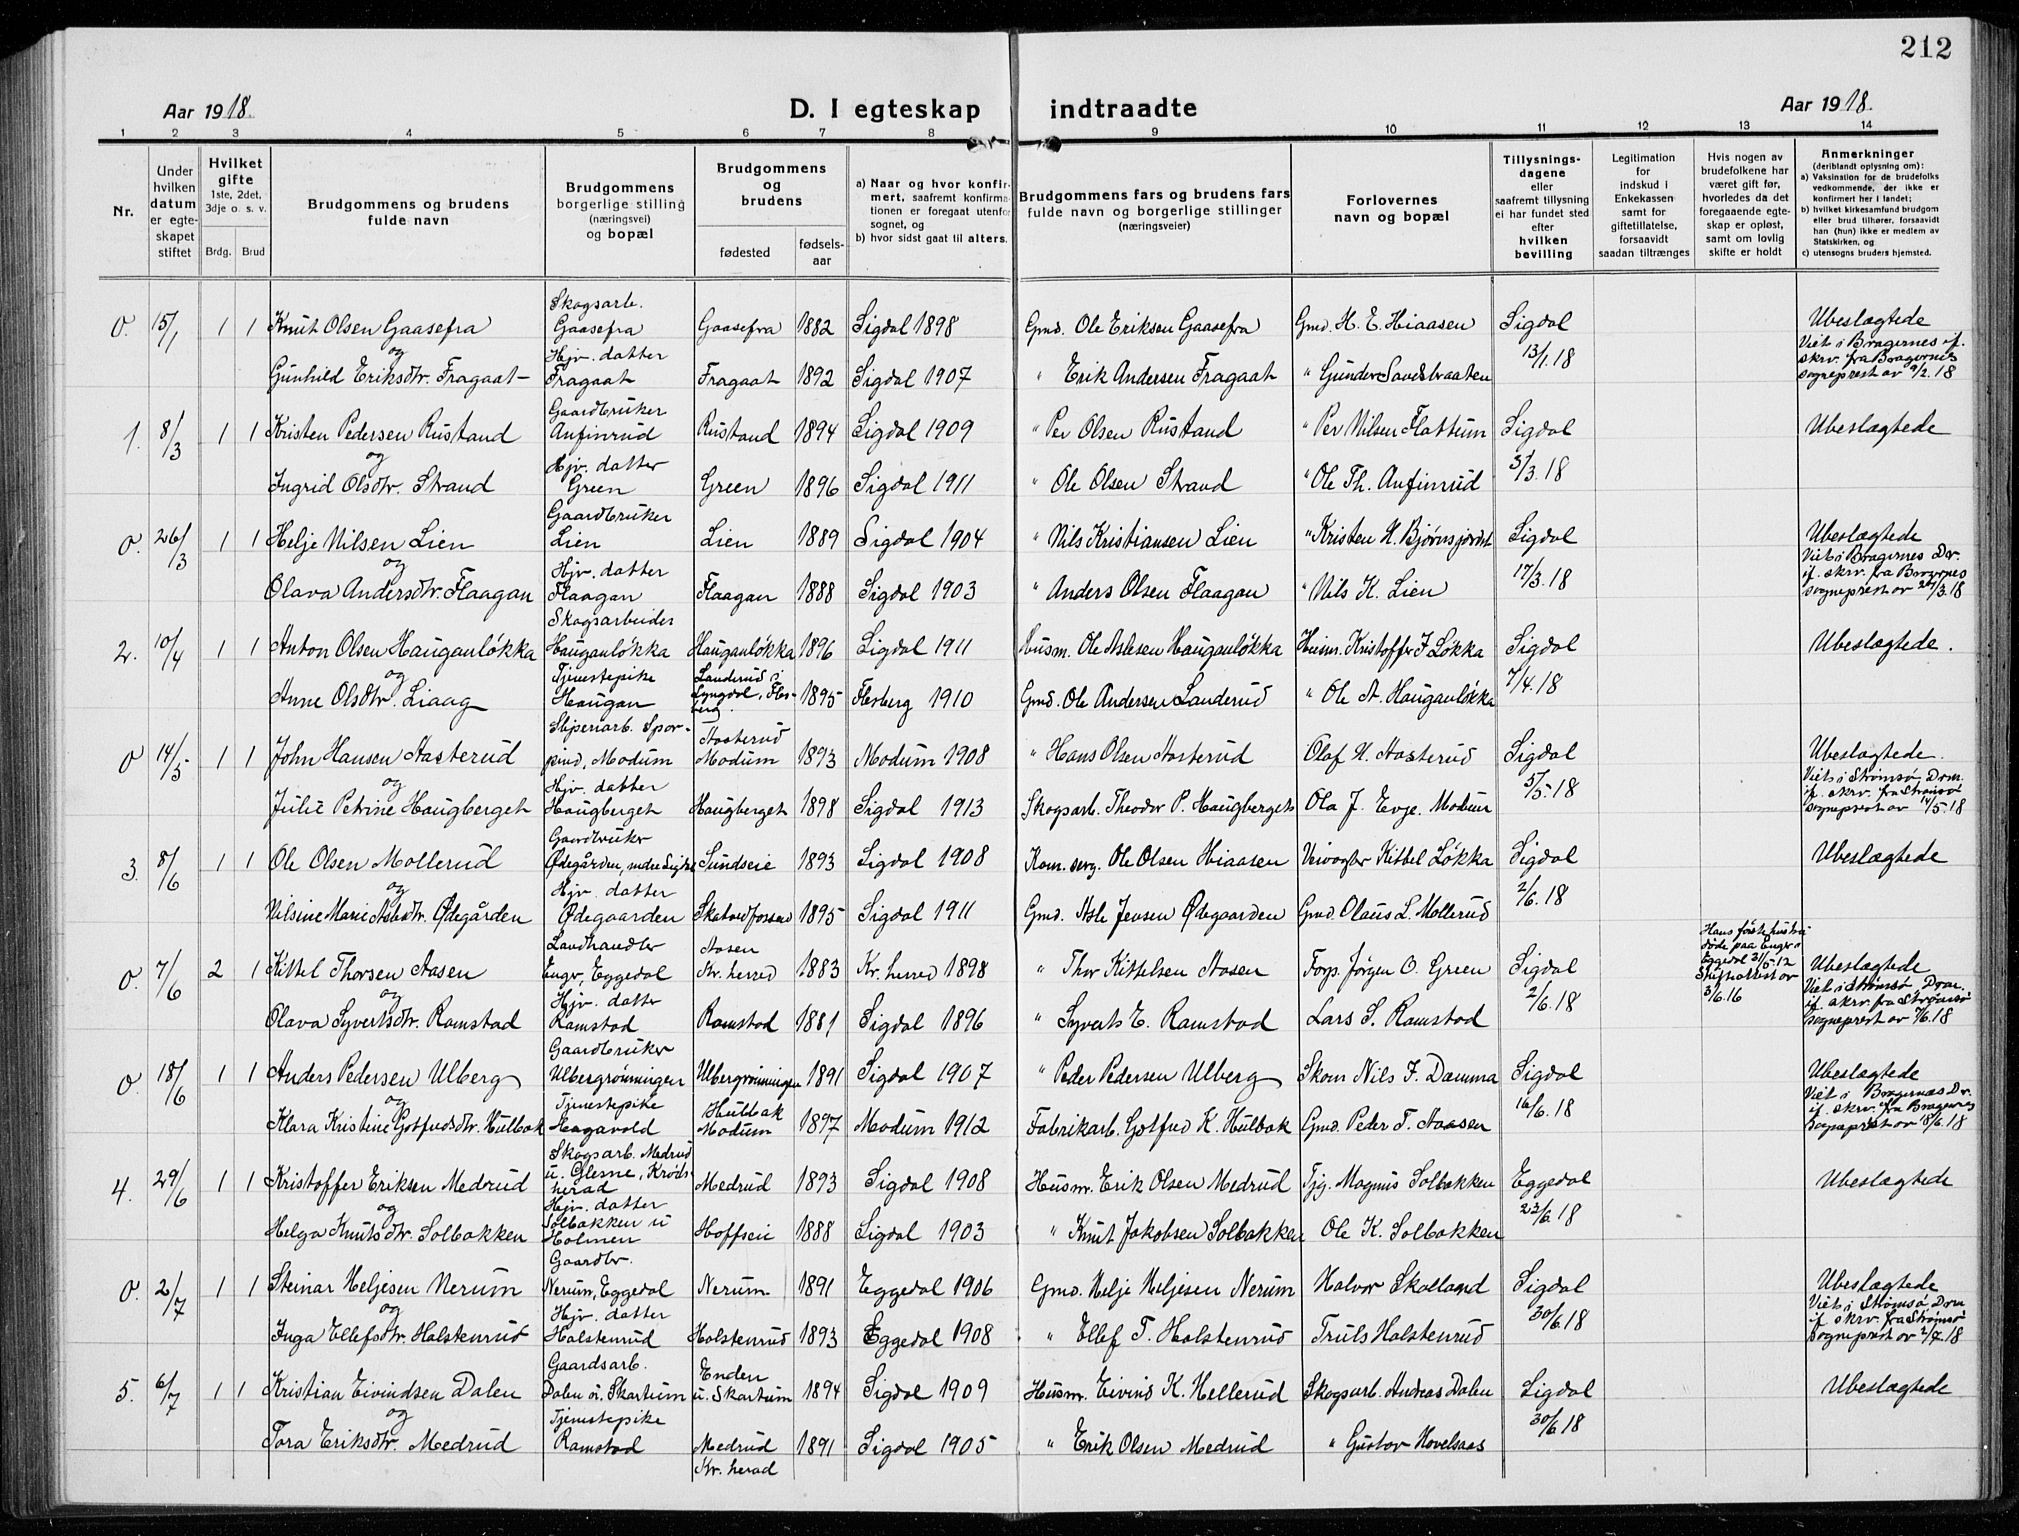 212
Aar 1918.
D. I egteskap indtraadte
Aar 1918.
1 2 3 4 5 6 7 8 9 10 11 12 13 14
Nr.
Under hvilken datum er egteskapet stiftet
Hvilket gifte
1ste, 2det, 3dje o. s. v.
Brdg. Brud
Brudgommens og brudens fulde navn
Brudgommens borgerlige stilling (næringsvei) og bopæl
Brudgommens og brudens
fødested
fødsels-aar
a) Naar og hvor konfirmert, saafremt konfirmationen er foregaat utenfor sognet, og
b) hvor sidst gaat til alters.
Brudgommens fars og brudens fars fulde navn og borgerlige stillinger (næringsveier)
Forlovernes navn og bopæl
Tillysningsdagene eller saafremt tillysning ei har fundet sted efter hvilken bevilling
Legitimation for indskud i Enkekassen samt for giftetillatelse, forsaavidt saadan tiltrænges
Hvis nogen av brudefolkene har været gift før, hvorledes da det foregaaende egteskap er opløst, samt om lovlig skifte er holdt
Anmerkninger
(deriblandt oplysning om):
a) Vaksination for de brudefolks vedkommende, der ikke er konfirmert her i landet;
b) hvilket kirkesamfund brudgom eller brud tilhører, forsaavidt han (hun) ikke er medlem av Statskirken, og
c) utensogns bruders hjemsted.
0. 15/1 1 1 Knut Olsen Gaasefra Skogsarb. Gaasefra Gaasefra 1882 Sigdal 1898 Gmd. Ole Eriksen Gaasefra Gmd. H. E. Hiaasen Sigdal 13/1.18 Ubeslægtede
og
Gunhild Eriksdtr. Fragaat Hjv. datter Fragaat Fragaat 1892 Sigdal 1907 " Erik Andersen Fragaat " Gunder Sandsbraaten Viet i Bragernes if. skrv. fra Bragernes sogneprest av 9/2.18
1. 8/3 1 1 Kristen Pedersen Rustand Gaardbruker Anfinrud Rustand 1894 Sigdal 1909 " Per Olsen Rustand " Per Nilsen Flattum Sigdal 3/3.18 Ubeslægtede
og
Ingrid Olsdtr. Strand Hjv. datter Green Green 1896 Sigdal 1911 " Ole Olsen Strand " Ole Th. Anfinrud
0. 26/3 1 1 Helje Nilsen Lien Gaardbruker Lien Lien 1889 Sigdal 1904 " Nils Kristiansen Lien " Kristen H. Bjørnsjordet Sigdal 17/3.18 Ubeslægtede
og
Olava Andersdtr. Flaagan Hjv. datter Flaagan Flaagan 1888 Sigdal 1903 " Anders Olsen Flaagan " Nils K. Lien Viet i Bragernes Dr. if. skrv. fra Bragernes sogneprest av 26/3.18
2. 10/4 1 1 Anton Olsen Hauganløkka Skogsarbeider Hauganløkka Hauganløkka 1896 Sigdal 1911 Husm. Ole Aslesen Hauganløkka Husm. Kristoffer J Løkka Sigdal 7/4.18 Ubeslægtede.
og
Anne Olsdtr. Liaag Tjenestepike Haugan Landerud i Lyngdal, Flesberg. 1895 Flesberg 1910 Gmd. Ole Andersen Landerud " Ole A. Hauganløkka
0 14/5 1 1 John Hansen Aasterud Sliperiarb. Sporpind, Modum Aasterud Modum 1893 Modum 1908 " Hans Olsen Aasterud Olaf H. Aasterud Sigdal 5/5.18 Ubeslægtede.
og
Julie Petrine Haugberget Hjv. datter Haugberget Haugberget 1898 Sigdal 1913 Skogsarb. Theodor P. Haugberget Ola J. Evje. Modum Viet i Strømsø, Dram. if. skrv. fra Strømsø sogneprest av 14/5.18
3. 8/6 1 1 Ole Olsen Mollerud Gaardbruker Ødegården, nedre Sigdal Sundseie 1893 Sigdal 1908 Kom. serg. Ole Olsen Hiaasen Veivogter Kittel Løkka Sigdal 2/6.18 Ubeslægtede
og
Nilsine Marie Aslesdtr. Ødegården Hjv. datter Ødegaarden Skatvedfossen 1895 Sigdal 1911 Gmd. Asle Jensen Ødegaarden Gmd. Olaus L. Mollerud
0. 7/6 2 1 Kittel Thorsen Aasen Landhandler Enger, Eggedal Aasen Kr. herred 1883 Kr. herred 1898 " Thor Kittelsen Aasen Forp. Jørgen O. Green Sigdal 2/6.18 Hans første hustru døde paa Enger i Eggedal 21/5-12 Skifteattest av 3/6.16 Ubeslægtede
og
Olava Syvertsdtr. Ramstad Hjv. datter Ramstad Ramstad 1881 Sigdal 1896 " Syvert E. Ramstad Lars S. Ramstad Viet i Strømsø, Dram. if. skrv. fra Strømsø sogneprest av 7/6.18
0. 18/6 1 1 Anders Pedersen Ulberg Gaardbruker Ulbergrønningen Ulbergrønningen 1891 Sigdal 1907 " Peder Pedersen Ulberg Skom Nils F. Damma Sigdal 16/6.18 Ubeslægtede
og
Klara Kristine Gotfredsdtr. Hulbak Tjenestepike Haagavold Hulbak Modum 1897 Modum 1912 Fabrikarb. Gotfred K. Hulbak Gmd. Peder T. Aasen Viet i Bragernes Dr. if. skrv. fra Bragernes sogneprest av 18/6.18
4. 29/6 1 1 Kristoffer Eriksen Medrud Skogsarb. Medrud u. Glesne, Krødsherad Medrud 1893 Sigdal 1908 Husm. Erik Olsen Medrud Tjg. Magnus Solbakken Eggedal 23/6.18 Ubeslægtede
og
Helga Knutsdtr. Solbakken Hjv. datter Solbakken u Holmen Hoffseie 1888 Sigdal 1903 " Knut Jakobsen Solbakken Ole K. Solbakken
0. 2/7 1 1 Steinar Heljesen Nerum Gaardbr. Nerum, Eggedal Nerum 1891 Eggedal 1906 Gmd. Helje Heljesen Nerum Halvor Skalland Sigdal 30/6.18 Ubeslægtede
og
Inga Ellefsdtr. Holstenrud Hjv. datter Holstenrud Holstenrud 1893 Eggedal 1908 " Ellef T. Holstenrud Truls Holstenrud Viet i Strømsø, Dram if. skrv. fra Strømsø sogneprest av 2/7.18
5. 6/7 1 1 Kristian Eivindsen Dalen Gaardsarb. Dalen u. Skartum Enden u. Skartum 1894 Sigdal 1909 Husm. Eivind K. Hellerud Skogsarb. Andreas Dalen Sigdal 30/6.18 Ubeslægtede
og
Tora Eriksdtr. Medrud Tjenestepike Ramstad Medrud Kr. herad 1891 Sigdal 1905 " Erik Olsen Medrud " Gustav Hovelsaas